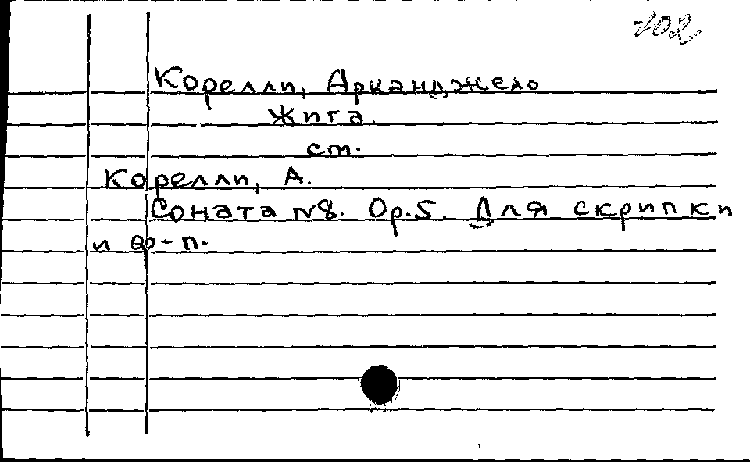 102
Корелли, Арканджело
Жига.
ст.
Корелли, А.
Соната №8. Ор.5. Для скрипки
и ф-п.